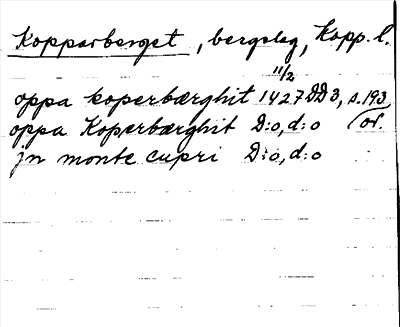 Kopparberget, bergslag, Kopp. l.
11/2
oppa koperbærghit 1427 DD 3, s. 193
oppa Koperbærghit D:o, d:o or.
jn monte cupri D:o, d:o